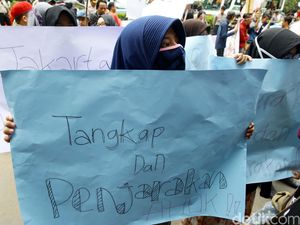 Jakarta
Tangkap
Dan
Penjarakan
detikcom